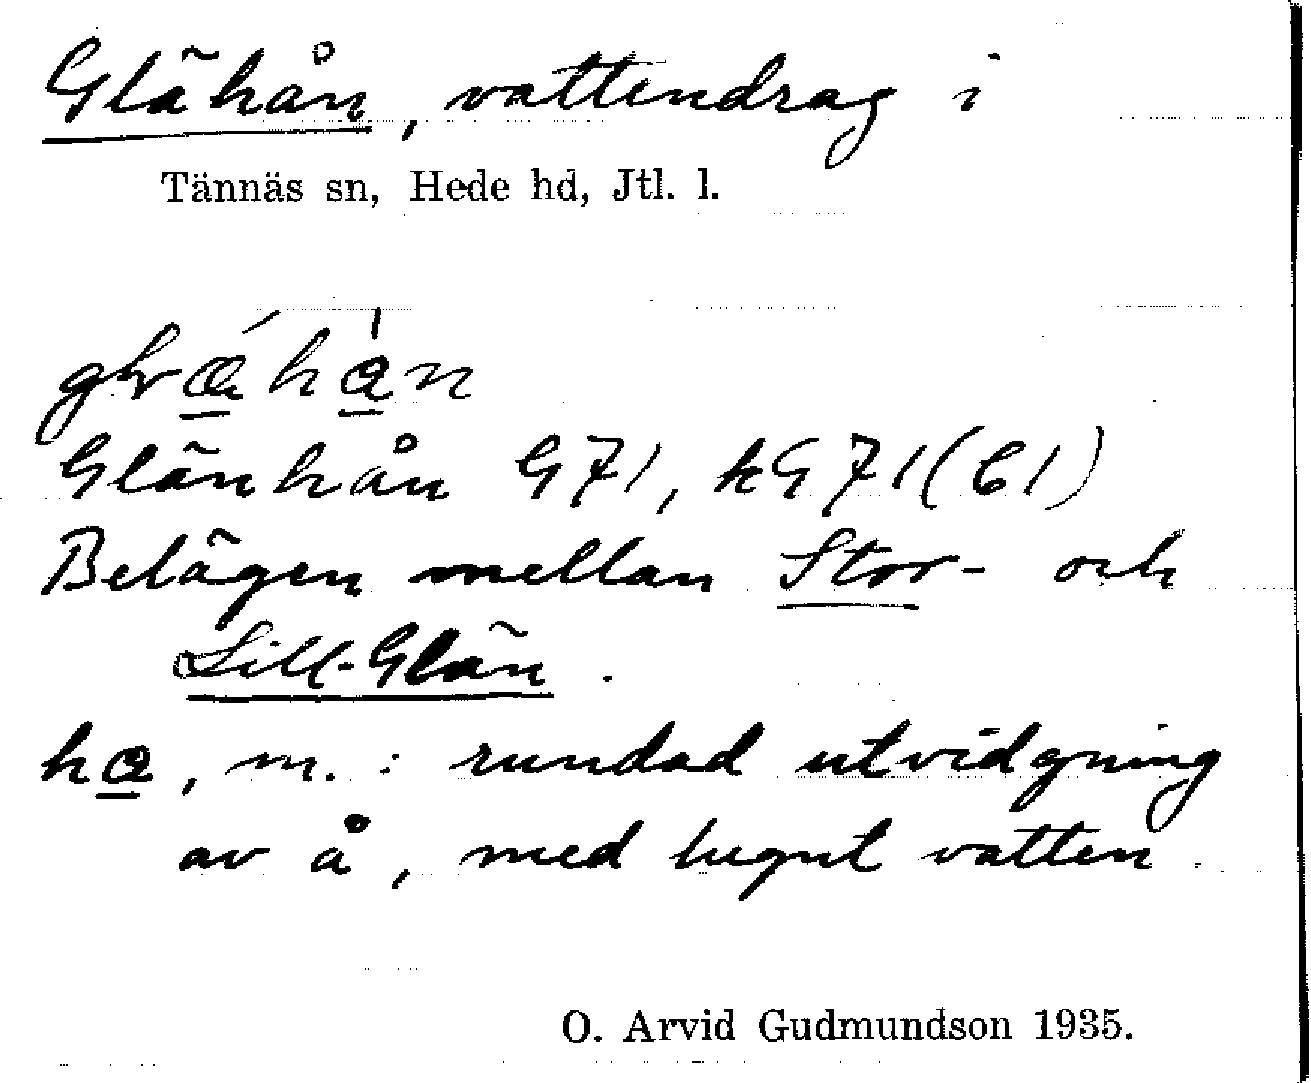 Glähån, vattendrag i
Tännäs sn, Hede hd, Jtl. l.
Glänhån G71, kG71(61)
Belägen mellan Stor- och
Lill-Glän.
ha, m. : rundad utvidgning
av å, med lugnt vatten.
O. Arvid Gudmundson 1935.